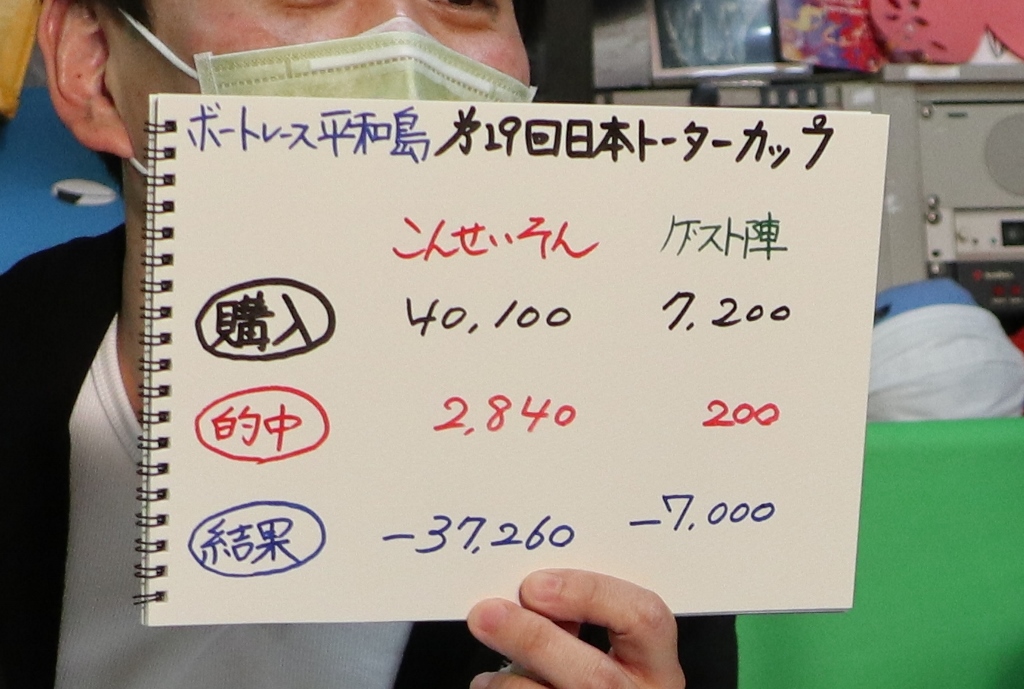 ボートレース平和島 第19回日本トーターカップ
こんせいそん ゲスト陣
購入 40,100 7,200
的中 2,840 200
結果 -37,260 -7,000